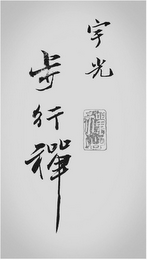 宇光
步行禪